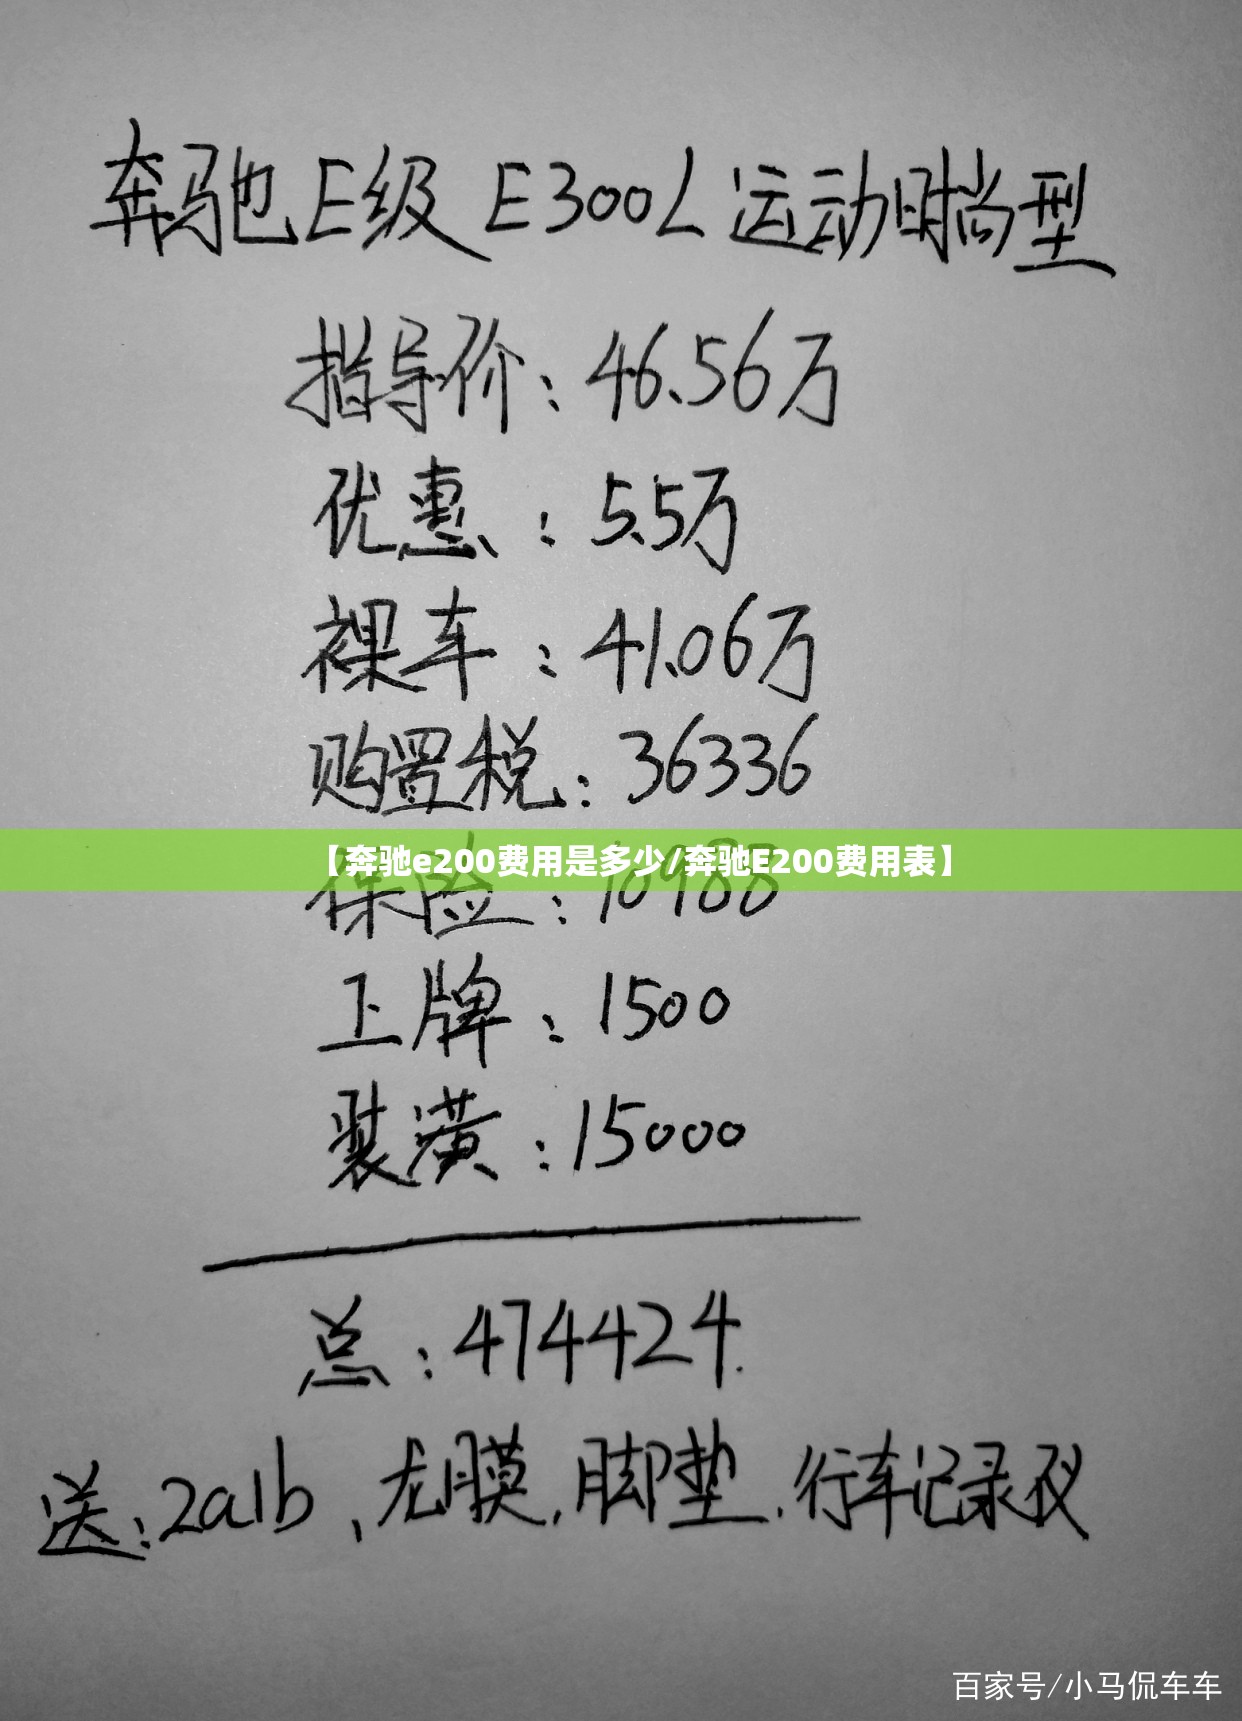 奔驰E级 E300L 运动时尚型
指导价：46.56万
优惠：5.5万
裸车：41.06万
购置税：36336
【奔驰e200费用是多少/奔驰E200费用表】
保险：10988
上牌：1500
装潢：15000
总：474424.
送：2a1b、龙膜,脚垫,行车记录仪
百家号/小马侃车车